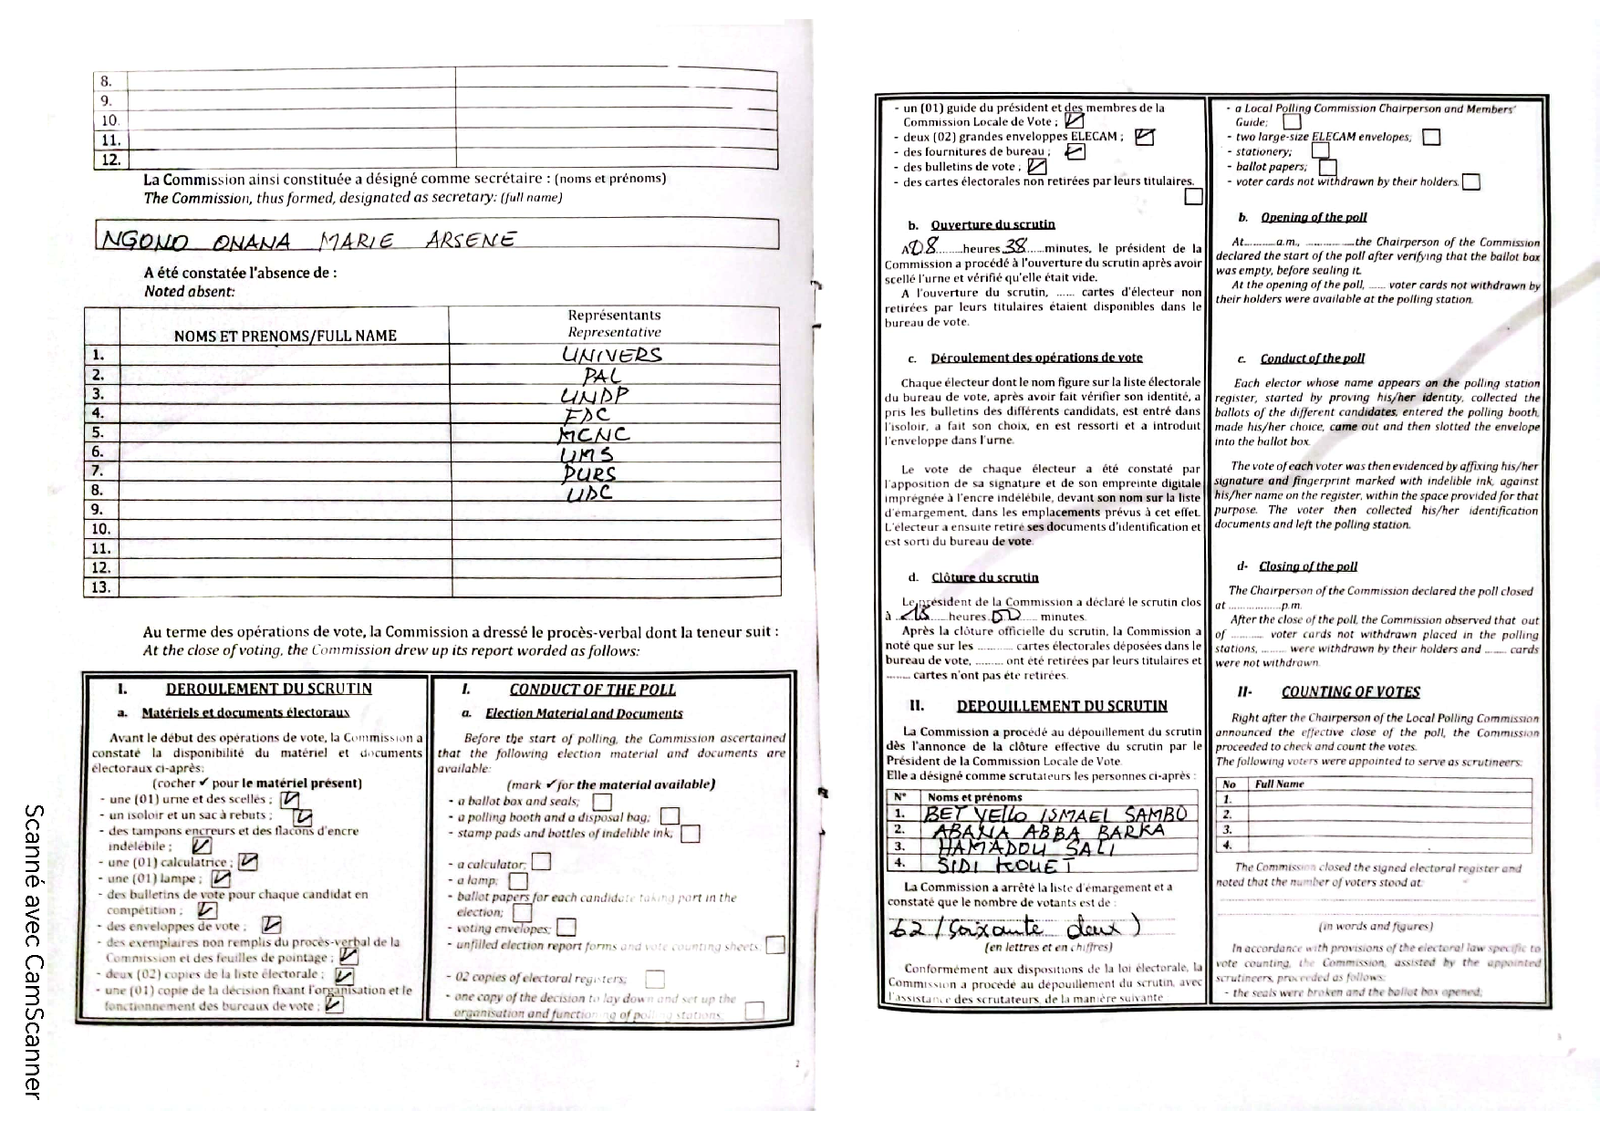 8.
9.
10.
11.
12.
La Commission ainsi constituée a désigné comme secrétaire : (noms et prénoms)
The Commission, thus formed, designated as secretary: (full name)
NGONO ONANA MARIE ARSENE
A été constatée l'absence de :
Noted absent:
NOMS ET PRENOMS/FULL NAME
Représentants
Representative
1. UNIVERS
2. PAL
3. UNDP
4. FDC
5. MCNC
6. UMS
7. PURS
8. UDC
9.
10.
11.
12.
13.
Au terme des opérations de vote, la Commission a dressé le procès-verbal dont la teneur suit :
At the close of voting, the Commission drew up its report worded as follows:
I. DEROULEMENT DU SCRUTIN
a. Matériels et documents électoraux
Avant le début des opérations de vote, la Commission a
constaté la disponibilité du matériel et documents
électoraux ci-après:
(cocher ✓ pour le matériel présent)
- une (01) urne et des scellés ;
- un isoloir et un sac à rebuts ;
- des tampons encreurs et des flacons d'encre
indélébile ;
- une (01) calculatrice ;
- une (01) lampe ;
- des bulletins de vote pour chaque candidat en
compétition ;
- des enveloppes de vote ;
- des exemplaires non remplis du procès-verbal de la
Commission et des feuilles de pointage ;
- deux (02) copies de la liste électorale ;
- une (01) copie de la décision fixant l'organisation et le
fonctionnement des bureaux de vote ;
I. CONDUCT OF THE POLL
a. Election Material and Documents
Before the start of polling, the Commission ascertained
that the following election material and documents are
available:
(mark ✓ for the material available)
- a ballot box and seals;
- a polling booth and a disposal bag;
- stamp pads and bottles of indelible ink;
- a calculator;
- a lamp;
- ballot papers for each candidate taking part in the
election;
- voting envelopes;
- unfilled election report forms and vote counting sheets;
- 02 copies of electoral registers;
- one copy of the decision to lay down and set up the
organisation and functioning of polling stations;
2
- un (01) guide du président et des membres de la
Commission Locale de Vote ;
- deux (02) grandes enveloppes ELECAM ;
- des fournitures de bureau ;
- des bulletins de vote ;
- des cartes électorales non retirées par leurs titulaires.
b. Ouverture du scrutin
A 08 heures 38 minutes, le président de la
Commission a procédé à l'ouverture du scrutin après avoir
scellé l'urne et vérifié qu'elle était vide.
A l'ouverture du scrutin, ...... cartes d'électeur non
retirées par leurs titulaires étaient disponibles dans le
bureau de vote.
c. Déroulement des opérations de vote
Chaque électeur dont le nom figure sur la liste électorale
du bureau de vote, après avoir fait vérifier son identité, a
pris les bulletins des différents candidats, est entré dans
l'isoloir, a fait son choix, en est ressorti et a introduit
l'enveloppe dans l'urne.
Le vote de chaque électeur a été constaté par
l'apposition de sa signature et de son empreinte digitale
imprégnée à l'encre indélébile, devant son nom sur la liste
d'émargement, dans les emplacements prévus à cet effet.
L'électeur a ensuite retiré ses documents d'identification et
est sorti du bureau de vote.
d. Clôture du scrutin
Le président de la Commission a déclaré le scrutin clos
à 18 heures 00 minutes.
Après la clôture officielle du scrutin, la Commission a
noté que sur les .......... cartes électorales déposées dans le
bureau de vote, ........ ont été retirées par leurs titulaires et
....... cartes n'ont pas été retirées.
II. DEPOUILLEMENT DU SCRUTIN
La Commission a procédé au dépouillement du scrutin
dès l'annonce de la clôture effective du scrutin par le
Président de la Commission Locale de Vote.
Elle a désigné comme scrutateurs les personnes ci-après :
N° Noms et prénoms
1. BET YELLO ISMAEL SAMBO
2. ABANA ABBA BARKA
3. HAMADOU SALI
4. SIDI KOUET
La Commission a arrêté la liste d'émargement et a
constaté que le nombre de votants est de :
62 / (Soixante deux )
(en lettres et en chiffres)
Conformément aux dispositions de la loi électorale, la
Commission a procédé au dépouillement du scrutin, avec
l'assistance des scrutateurs, de la manière suivante
- a Local Polling Commission Chairperson and Members'
Guide;
- two large-size ELECAM envelopes;
- stationery;
- ballot papers;
- voter cards not withdrawn by their holders.
b. Opening of the poll
At..........a.m., ..............the Chairperson of the Commission
declared the start of the poll after verifying that the ballot box
was empty, before sealing it.
At the opening of the poll, ...... voter cards not withdrawn by
their holders were available at the polling station.
c. Conduct of the poll
Each elector whose name appears on the polling station
register, started by proving his/her identity, collected the
ballots of the different candidates, entered the polling booth,
made his/her choice, came out and then slotted the envelope
into the ballot box.
The vote of each voter was then evidenced by affixing his/her
signature and fingerprint marked with indelible ink, against
his/her name on the register, within the space provided for that
purpose. The voter then collected his/her identification
documents and left the polling station.
d- Closing of the poll
The Chairperson of the Commission declared the poll closed
at ................p.m.
After the close of the poll, the Commission observed that out
of .......... voter cards not withdrawn placed in the polling
stations, ........ were withdrawn by their holders and ....... cards
were not withdrawn.
II- COUNTING OF VOTES
Right after the Chairperson of the Local Polling Commission
announced the effective close of the poll, the Commission
proceeded to check and count the votes.
The following voters were appointed to serve as scrutineers:
No Full Name
1.
2.
3.
4.
The Commission closed the signed electoral register and
noted that the number of voters stood at:
(in words and figures)
In accordance with provisions of the electoral law specific to
vote counting, the Commission, assisted by the appointed
scrutineers, proceeded as follows:
- the seals were broken and the ballot box opened;
3
Scanné avec CamScanner